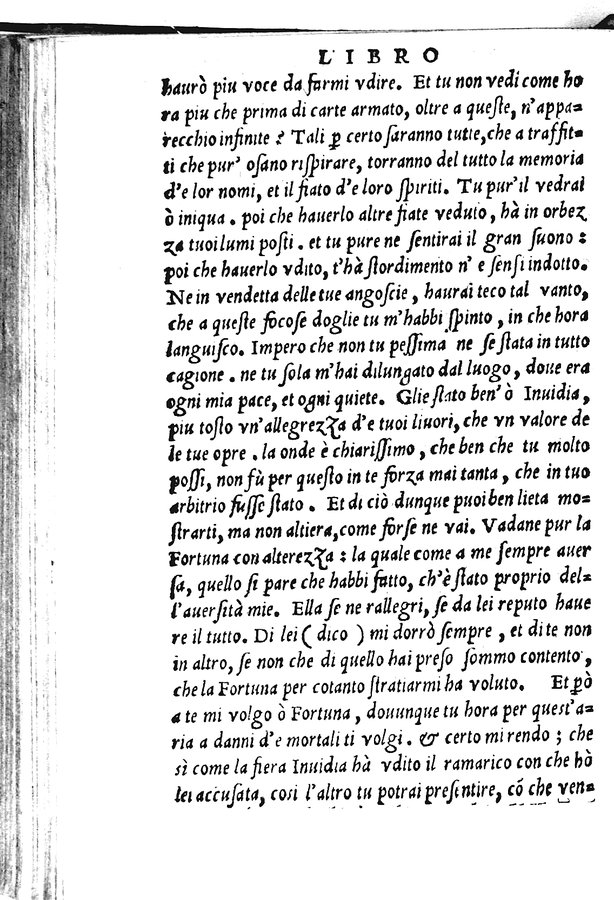 LIBRO
haurò piu voce da farmi vdire. Et tu non vedi come ho
ra piu che prima di carte armato, oltre a queſte, n'appa=
recchio infinite ? Tali ꝑ certo ſaranno tutte, che a traffit=
ti che pur' oſano riſpirare, torranno del tutto la memoria
d'e lor nomi, et il fiato d'e loro ſpiriti. Tu pur'il vedrai
ò iniqua. poi che hauerlo altre fiate veduto, hà in orbez
za tuoi lumi poſti. et tu pure ne ſentirai il gran ſuono :
poi che hauerlo vdito, t'hà ſtordimento n' e ſenſi indotto.
Ne in vendetta delle tue angoſcie, haurai teco tal vanto,
che a queſte focoſe doglie tu m'habbi ſpinto, in che hora
languiſco. Impero che non tu peſſima ne ſe ſtata in tutto
cagione. ne tu ſola m'hai dilungato dal luogo, doue era
ogni mia pace, et ogni quiete. Glie ſtato ben' ò Inuidia,
piu toſto vn'allegrezza d'e tuoi liuori, che vn valore de
le tue opre. la onde è chiariſſimo, che ben che tu molto
poſſi, non fù per queſto in te forza mai tanta, che in tuo
arbitrio fuſſe ſtato. Et di ciò dunque puoi ben lieta mo=
ſtrarti, ma non altiera, come forſe ne vai. Vadane pur la
Fortuna con alterezza : la quale come a me ſempre auer
ſa, quello ſi pare che habbi fatto, ch'è ſtato proprio del=
l'auerſità mie. Ella ſe ne rallegri, ſe da lei reputo haue
re il tutto. Di lei ( dico ) mi dorrò ſempre, et di te non
in altro, ſe non che di quello hai preſo ſommo contento,
che la Fortuna per cotanto ſtratiarmi ha voluto. Et ꝑò
a te mi volgo ò Fortuna, douunque tu hora per queſt'a=
ria a danni d'e mortali ti volgi. & certo mi rendo ; che
sì come la fiera Inuidia hà vdito il ramarico con che hò
lei accuſata, coſi l'altro tu potrai preſentire, cõ che ven=